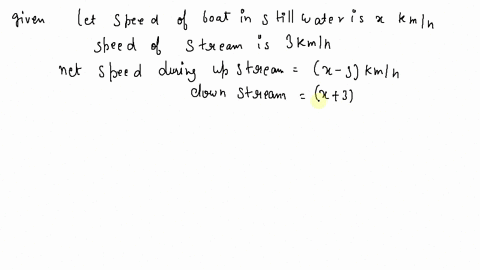 given let speed of boat in still water is x km/h
speed of stream is 3 km/h
net speed during up stream = (x-3) km/h
down stream = (x+3)